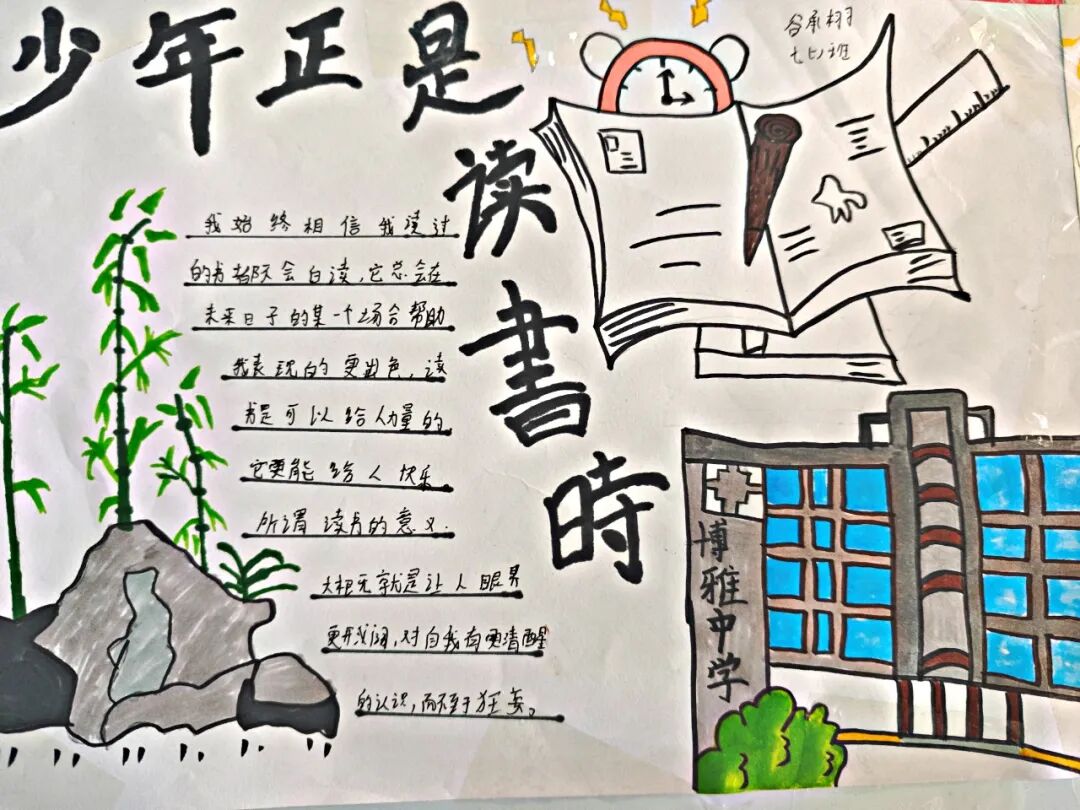 少年正是
读書時
七
班
我始终相信我读过
的书都不会白读,它总会在
未来日子的某一个场合帮助
我表现的更出色,读
书是可以给人力量的
它更能给人快乐
所谓读书的意义.
大概无就是让人眼界
更开阔,对自我有更清醒
的认识,而不至于狂妄。
博雅中学